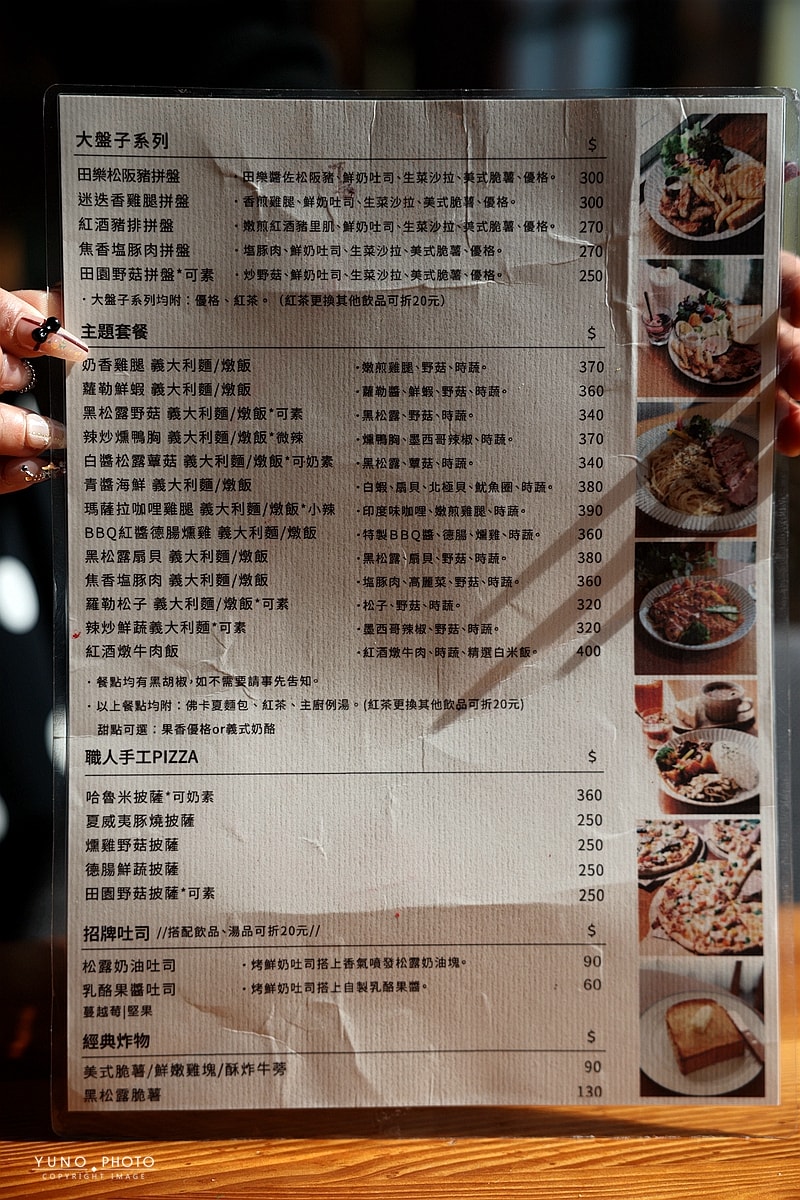 大盤子系列 $
田樂松阪豬拼盤 ·田樂醬佐松阪豬、鮮奶吐司、生菜沙拉、美式脆薯、優格。 300
迷迭香雞腿拼盤 ·香煎雞腿、鮮奶吐司、生菜沙拉、美式脆薯、優格。 300
紅酒豬排拼盤 ·嫩煎紅酒豬里肌、鮮奶吐司、生菜沙拉、美式脆薯、優格。 270
焦香塩豚肉拼盤 ·塩豚肉、鮮奶吐司、生菜沙拉、美式脆薯、優格。 270
田園野菇拼盤*可素 ·炒野菇、鮮奶吐司、生菜沙拉、美式脆薯、優格。 250
·大盤子系列均附：優格、紅茶。（紅茶更換其他飲品可折20元）
主題套餐 $
奶香雞腿 義大利麵/燉飯 ·嫩煎雞腿、野菇、時蔬。 370
蘿勒鮮蝦 義大利麵/燉飯 ·蘿勒醬、鮮蝦、野菇、時蔬。 360
黑松露野菇 義大利麵/燉飯*可素 ·黑松露、野菇、時蔬。 340
辣炒燻鴨胸 義大利麵/燉飯*微辣 ·燻鴨胸、墨西哥辣椒、時蔬。 370
白醬松露蕈菇 義大利麵/燉飯*可奶素 ·黑松露、蕈菇、時蔬。 340
青醬海鮮 義大利麵/燉飯 ·白蝦、扇貝、北極貝、魷魚圈、時蔬。 380
瑪薩拉咖哩雞腿 義大利麵/燉飯*小辣 ·印度味咖哩、嫩煎雞腿、時蔬。 390
BBQ紅醬德腸燻雞 義大利麵/燉飯 ·特製BBQ醬、德腸、燻雞、時蔬。 360
黑松露扇貝 義大利麵/燉飯 ·黑松露、扇貝、野菇、時蔬。 380
焦香塩豚肉 義大利麵/燉飯 ·塩豚肉、高麗菜、野菇、時蔬。 360
羅勒松子 義大利麵/燉飯*可素 ·松子、野菇、時蔬。 320
辣炒鮮蔬義大利麵*可素 ·墨西哥辣椒、野菇、時蔬。 320
紅酒燉牛肉飯 ·紅酒燉牛肉、時蔬、精選白米飯。 400
·餐點均有黑胡椒，如不需要請事先告知。
·以上餐點均附：佛卡夏麵包、紅茶、主廚例湯。(紅茶更換其他飲品可折20元)
甜點可選：果香優格or義式奶酪
職人手工PIZZA $
哈魯米披薩*可奶素 360
夏威夷豚燒披薩 250
燻雞野菇披薩 250
德腸鮮蔬披薩 250
田園野菇披薩*可素 250
招牌吐司 //搭配飲品、湯品可折20元// $
松露奶油吐司 ·烤鮮奶吐司搭上香氣噴發松露奶油塊。 90
乳酪果醬吐司 ·烤鮮奶吐司搭上自製乳酪果醬。 60
蔓越莓|堅果
經典炸物 $
美式脆薯/鮮嫩雞塊/酥炸牛蒡 90
黑松露脆薯 130
YUNO PHOTO
COPYRIGHT IMAGE